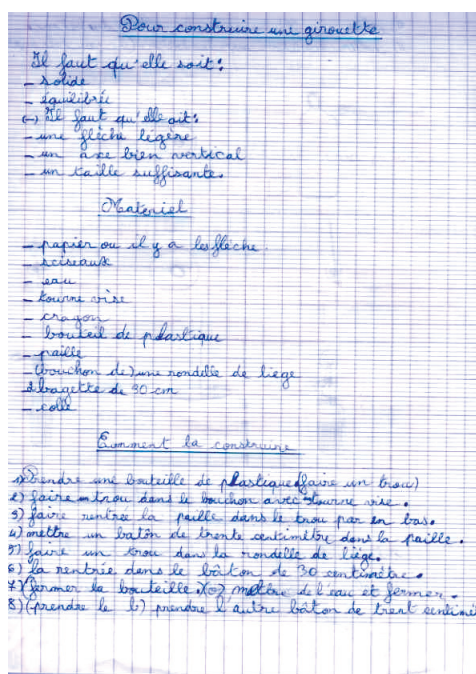 Pour construire une girouette
Il faut qu'elle soit:
- solide
- équilibrée
(-) Il faut qu'elle ait:
- une flèche légère
- un axe bien vertical
- un taille suffisante.
Materiel
- papier ou il y a les flèche.
- sciseaux
- eau
- tourne vise
- crayon
- bouteil de plastique
- paille
- (bouchon de) une rondelle de liege
2 bagette de 30 cm
- colle
Comment la construire
1) Prendre une bouteille de plastique (faire un trou)
2) faire un trou dans le bouchon avec tourne vise.
3) faire rentrée la paille dans le trou par en bas.
4) mettre un batôn de trente centimètre dans la paille.
5) faire un trou dans la rondelle de liège.
6) la rentrée dans le bâton de 30 centimètre.
7) (fermer la bouteille) mettre de l'eau et fermer.
8) (prendre le b) prendre l'autre bâton de trent centimè